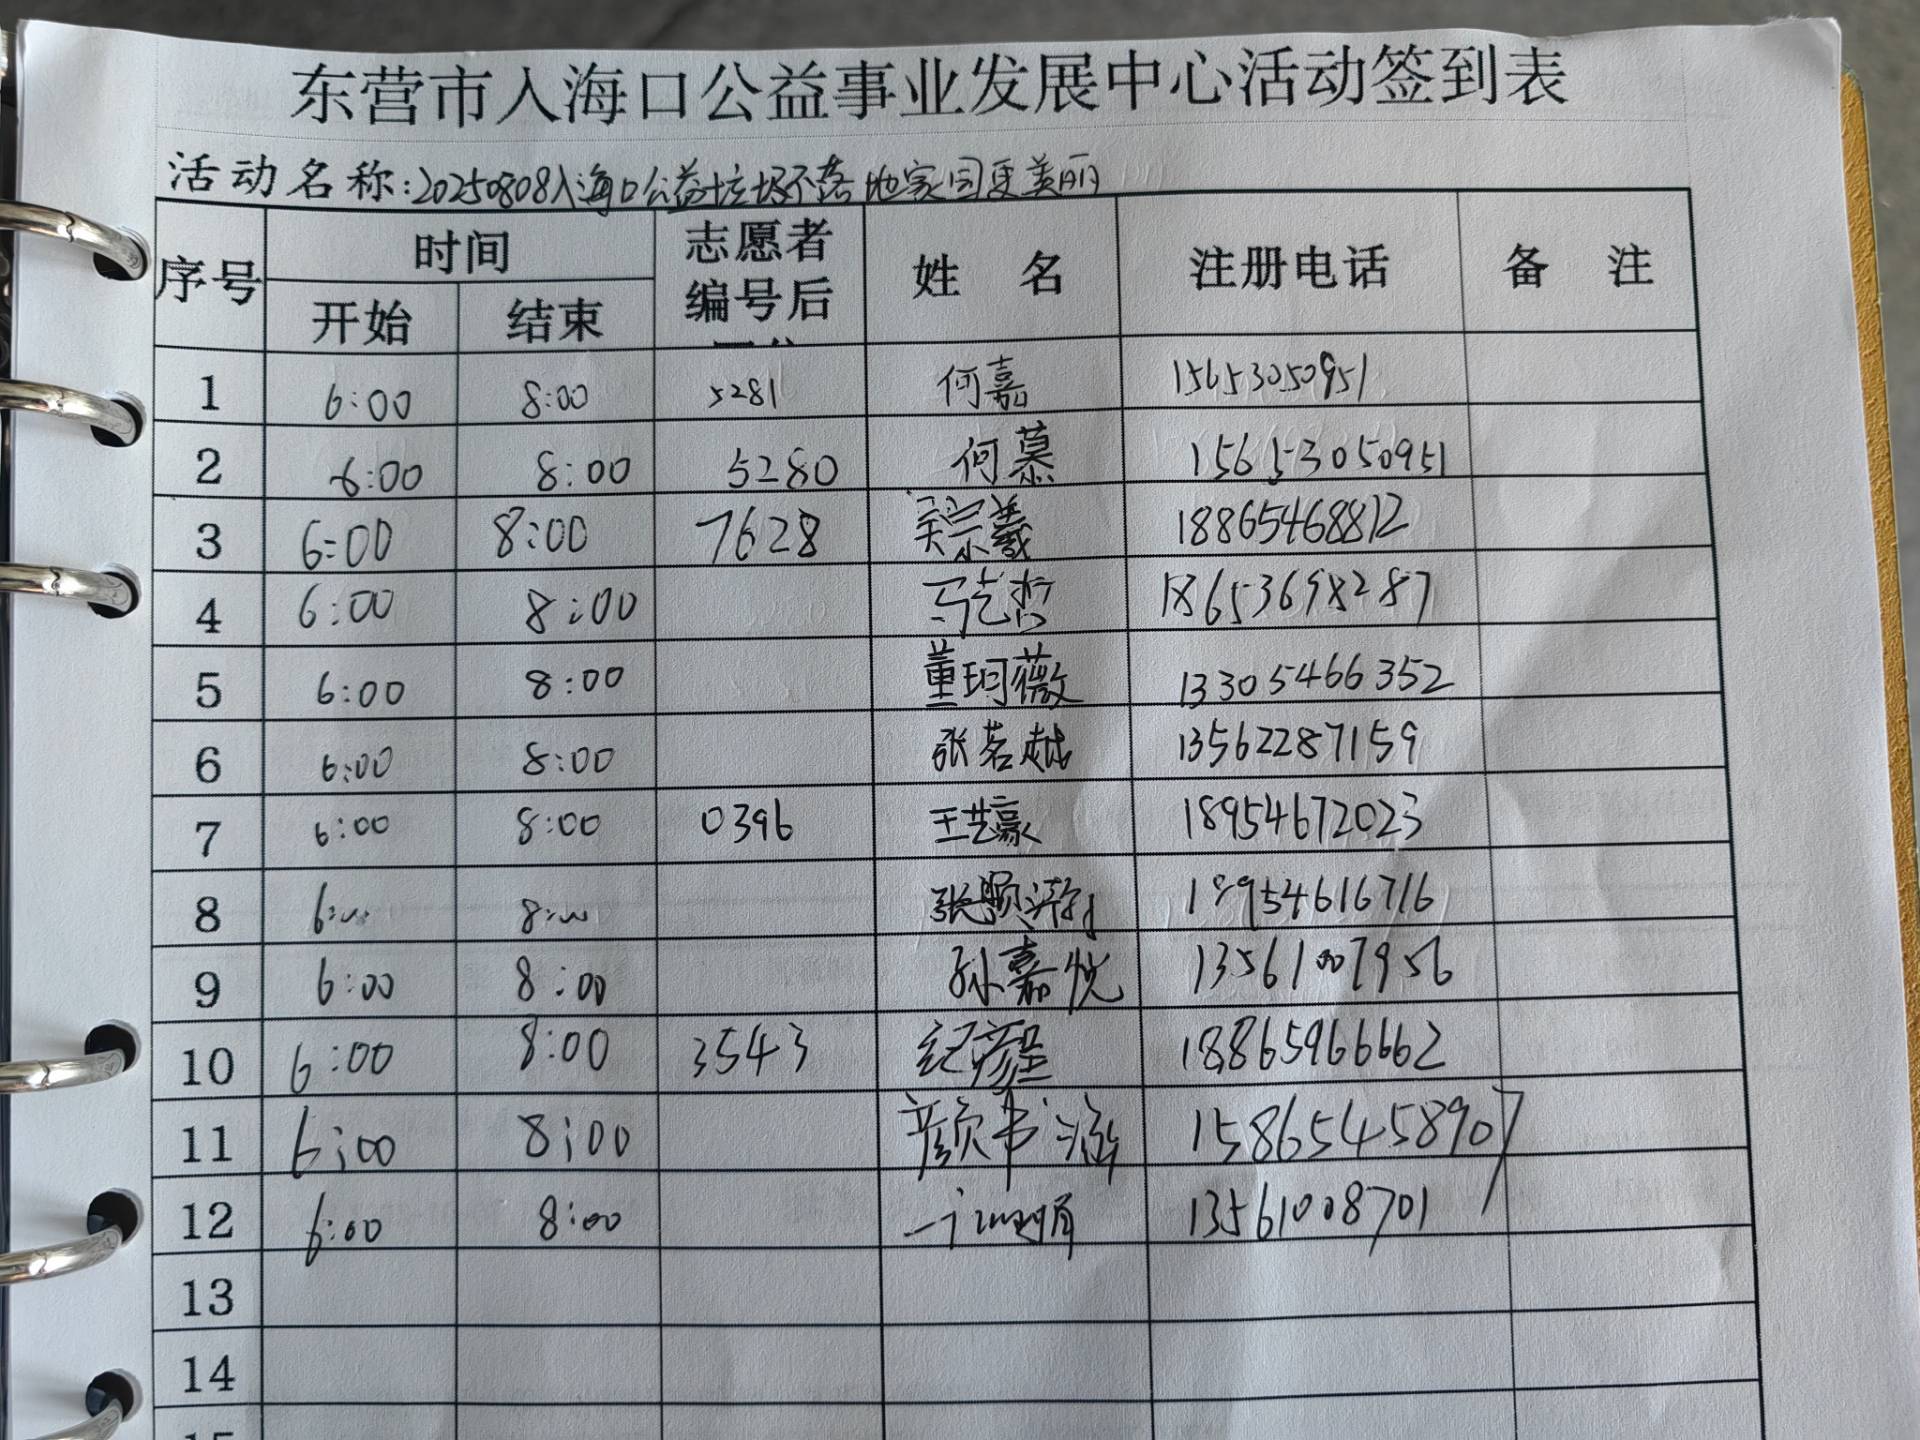 东营市入海口公益事业发展中心活动签到表
活动名称:20250808入海口公益垃圾不落地家园更美丽
序号 时间 志愿者编号后 姓 名 注册电话 备 注
开始 结束
1 6:00 8:00 5281 何嘉 15653050951
2 6:00 8:00 5280 何慕 15653050951
3 6:00 8:00 7628 18865468812
4 6:00 8:00 马艺哲 18653698287
5 6:00 8:00 董珂薇 13305466352
6 6:00 8:00 张茗越 13562287159
7 6:00 8:00 0396 王艺豪 18954672023
8 6:00 8:00 张颢瀚 18954616716
9 6:00 8:00 孙嘉悦 13561007956
10 6:00 8:00 3543 纪彦 18865966662
11 6:00 8:00 颜书涵 15865458907
12 6:00 8:00 13561008701
13
14
15